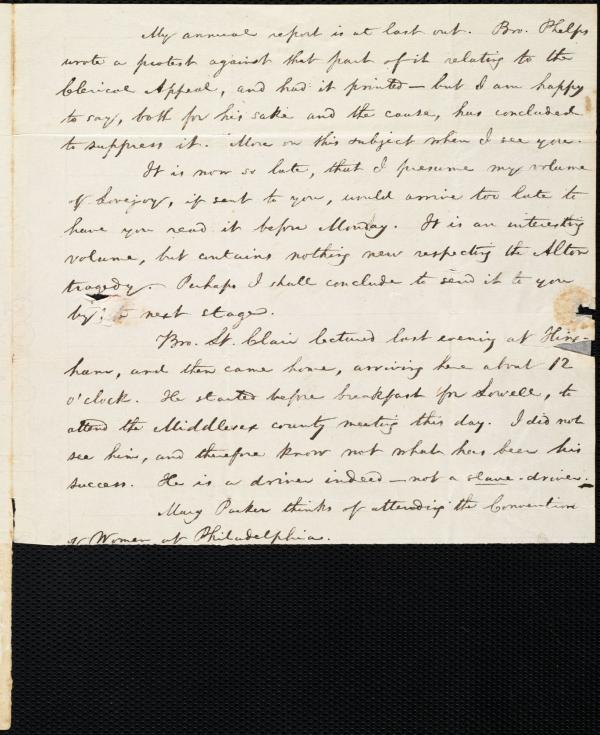 My annual report is at last out. Bro. Phelps
wrote a protest against that part of it relating to the
Clerical Appeal, and had it printed — but I am happy
to say, both for his sake and the cause, has concluded
to suppress it. More on this subject when I see you.
It is now so late, that I presume my volume
of Lovejoy, if sent to you, would arrive too late to
have you read it before Monday. It is an interesting
volume, but contains nothing new respecting the Alton
tragedy. Perhaps I shall conclude to send it to you
by next stage.
Bro. St. Clair lectured last evening at Hing-
ham, and then came home, arriving here about 12
o'clock. He started before breakfast for Lowell, to
attend the Middlesex county meeting this day. I did not
see him, and therefore know not what has been his
success. He is a driver indeed — not a slave-driver.
Mary Parker thinks of attending the Convention
of Women at Philadelphia.